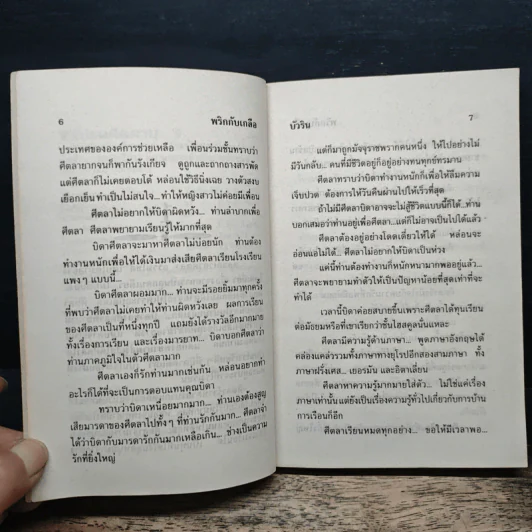 6 พริกกับเกลือ
ประเทศขององค์การช่วยเหลือ เพื่อนร่วมชั้นทราบว่า
ศีตลายากจนก็พากันรังเกียจ ดูถูกและถากถางสารพัด
แต่ศีตลาก็ไม่เคยตอบโต้ หล่อนใช้วิธีนิ่งเฉย วางตัวสงบ
เยือกเย็น ทำเป็นไม่สนใจ... ทำให้หญิงสาวไม่ค่อยมีเพื่อน
ศีตลาไม่อยากให้บิดาผิดหวัง... ท่านลำบากเพื่อ
ศีตลา ศีตลาพยายามเรียนรู้ให้มากที่สุด
บิดาศีตลาจะมาหาศีตลาไม่บ่อยนัก ท่านต้อง
ทำงานหนักเพื่อให้ได้เงินมาส่งเสียศีตลาเรียนโรงเรียน
แพงๆ แบบนี้...
บิดาศีตลาผอมมาก... ท่านจะมีรอยยิ้มมาทุกครั้ง
ที่พบว่าศีตลาไม่เคยทำให้ท่านผิดหวังเลย ผลการเรียน
ของศีตลาเป็นที่หนึ่งทุกปี แถมยังได้รางวัลอีกมากมาย
ทั้งเรื่องการเรียน และเรื่องมารยาท... บิดาบอกศีตลาว่า
ท่านภาคภูมิใจในตัวศีตลามาก
ศีตลาเองก็รักท่านมากเช่นกัน หล่อนอยากทำ
อะไรก็ได้ที่จะเป็นการตอบแทนคุณบิดา
ทราบว่าบิดาเหนื่อยมากมาก... ท่านเองต้องสูญ
เสียมารดาของศีตลาไปทั้งๆ ที่ท่านรักกันมาก... ศีตลาจำ
ได้ว่าบิดากับมารดารักกันมากเหลือเกิน... ช่างเป็นความ
รักที่ยิ่งใหญ่
บัวริน 7
แต่ก็มาถูกมัจจุราชพรากคนหนึ่ง ให้ไปอย่างไม่
มีวันกลับ... คนที่มีชีวิตอยู่ก็อยู่อย่างทนทุกข์ทรมาน
ศีตลาทราบว่าบิดาทำงานหนักก็เพื่อให้ลืมความ
เจ็บปวด ต้องการให้วันคืนผ่านไปให้เร็วที่สุด
ถ้าไม่มีศีตลาบิดาอาจจะไม่สู้ชีวิตแบบนี้ก็ได้...ท่าน
บอกเสมอว่าท่านอยู่เพื่อศีตลา...แต่ก็ไม่อาจเป็นไปได้แล้ว
ศีตลาต้องอยู่อย่างโดดเดี่ยวให้ได้ หล่อนจะ
อ่อนแอไม่ได้... ศีตลาไม่อยากให้บิดาเป็นห่วง
แค่นี้ท่านต้องทำงานก็หนักหนามากพออยู่แล้ว...
ศีตลาจะพยายามทำตัวให้เป็นปัญหาน้อยที่สุดเท่าที่จะ
ทำได้
เวลานี้บิดาค่อยสบายขึ้นเพราะศีตลาได้ทุนเรียน
ต่อมัธยมหรือที่เขาเรียกว่าชั้นไฮสคูลนั่นแหละ
ศีตลามีความรู้ด้านภาษา... พูดภาษาอังกฤษได้
คล่องแคล่วรวมทั้งภาษาทางยุโรปอีกสองสามภาษา ทั้ง
ภาษาฝรั่งเศส... เยอรมัน และอิตาเลี่ยน
ศีตลาหาความรู้มากมายใส่ตัว... ไม่ใช่แค่เรื่อง
ภาษาเท่านั้น แต่ยังเป็นเรื่องความรู้ทั่วไปเกี่ยวกับการบ้าน
การเรือนก็อีก
ศีตลาเรียนหมดทุกอย่าง... ขอให้มีเวลาพอ...